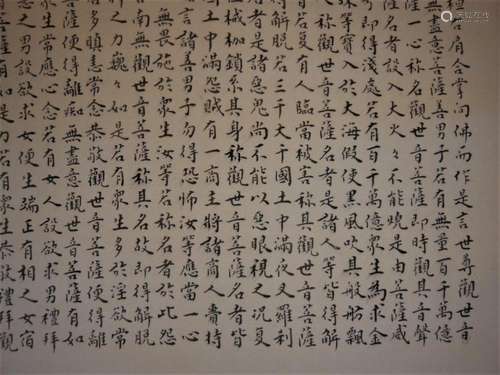 檀右肩合掌向佛而作是言世尊觀世音
無盡意菩薩善男子若有無量百千萬億
薩一心稱名觀世音菩薩即時觀其音聲
名者設入大火々不能燒由是菩薩威
即得淺處若有百千萬億眾生為求金
珠等寶入於大海假使黑風吹其船舫飄
稱觀世音菩薩名者是諸人等皆得解
若復有人臨當被害稱其觀世音菩薩
得解脫若三千大千國土中滿夜叉羅利
名者是諸惡鬼尚不能以惡眼視之況復
杻械枷鎖系其身稱觀世音菩薩名者皆
國土中滿怨賊有一商主將諸商人賷持
言諸善男子勿得恐怖汝等應當一心
無畏施於眾生汝等若稱名者於此怨
南無觀世音菩薩稱其名故即得解脫
神之力巍々如是若有眾生多於淫欲常
若多瞋恚常念恭敬觀世音菩薩便得離
薩便得離癡無盡意觀世音菩薩有如
生常應心念若有女人設欲求男禮拜
之男設欲求女便生端正有相之女宿
有如是力若有眾生恭敬禮拜觀